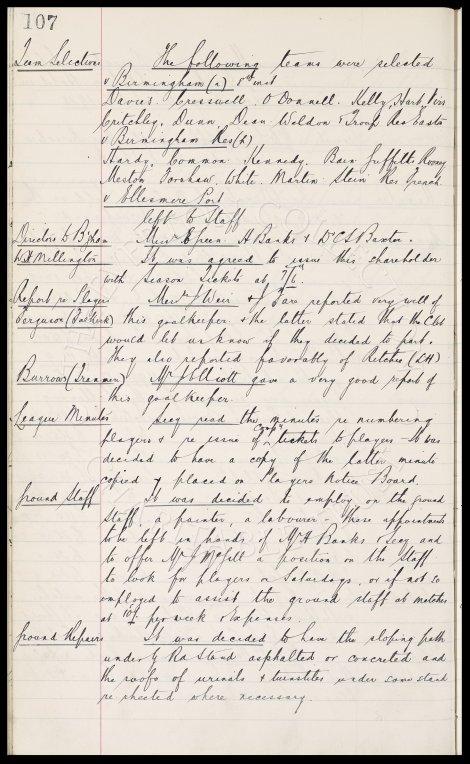 107
Team Selections The following teams were selected
v Birmingham (a) 5th inst
Davies. Cresswell. O'Donnell. Kelly, Hart Virr
Critchley. Dunn. Dean Weldon & Troup Res Easton
v Birmingham Res (h)
Hardy. Common. Kennedy. Bain Griffiths Rooney
Meston Forshaw. White. Martin Stein Res French
v Ellesmere Port
left to Staff
Directors to B'gham Messrs E Green. A Banks & Dr C S Baxter.
W H Millington It was agreed to issue this shareholder
with Season Tickets at 7/6.
Report re Player Messrs Weir & J reported very well of
Ferguson (Falkirk) this goalkeeper. & the latter stated that the Club
would let us know if they decided to part.
They also reported favorably of Ritchie (LH)
Burrows (Tranmere) Mr J Elliott gave a very good report of
this goalkeeper.
League Minutes Secy read the minutes re numbering
players & re issue of Comp tickets to players - It was
decided to have a copy of the latter minute
copied & placed on Players Notice Board.
Ground Staff It was decided to employ, on the ground
staff, a painter, a labourer - these appointments
to be left in hands of Mr A Banks & Secy and
to offer Mr J McFall a position on the staff
to look for players on Saturdays, or if not so
employed to assist the ground staff at matches
at 10/- per week & Expenses.
Ground Repairs It was decided to have the sloping path
under G Rd Stand asphalted or concreted and
the roofs of urinals & turnstiles under same stand
re sheeted where necessary.